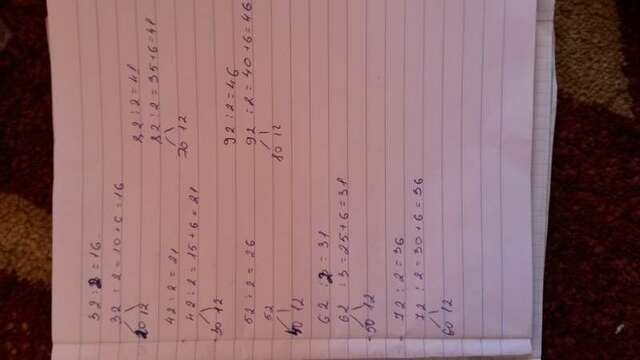 32 : 2 = 16.
32 : 2 = 10 + 6 = 16
20 12
42 : 2 = 21
42 : 2 = 15 + 6 = 21
30 12
52 : 2 = 26
52
40 12
62 : 2 = 31
62 : 3 = 25 + 6 = 31
50 12
72 : 2 = 36
72 : 2 = 30 + 6 = 36
60 12
82 : 2 = 41
82 : 2 = 35 + 6 = 41
70 12
92 : 2 = 46
92 : 2 = 40 + 6 = 46
80 12